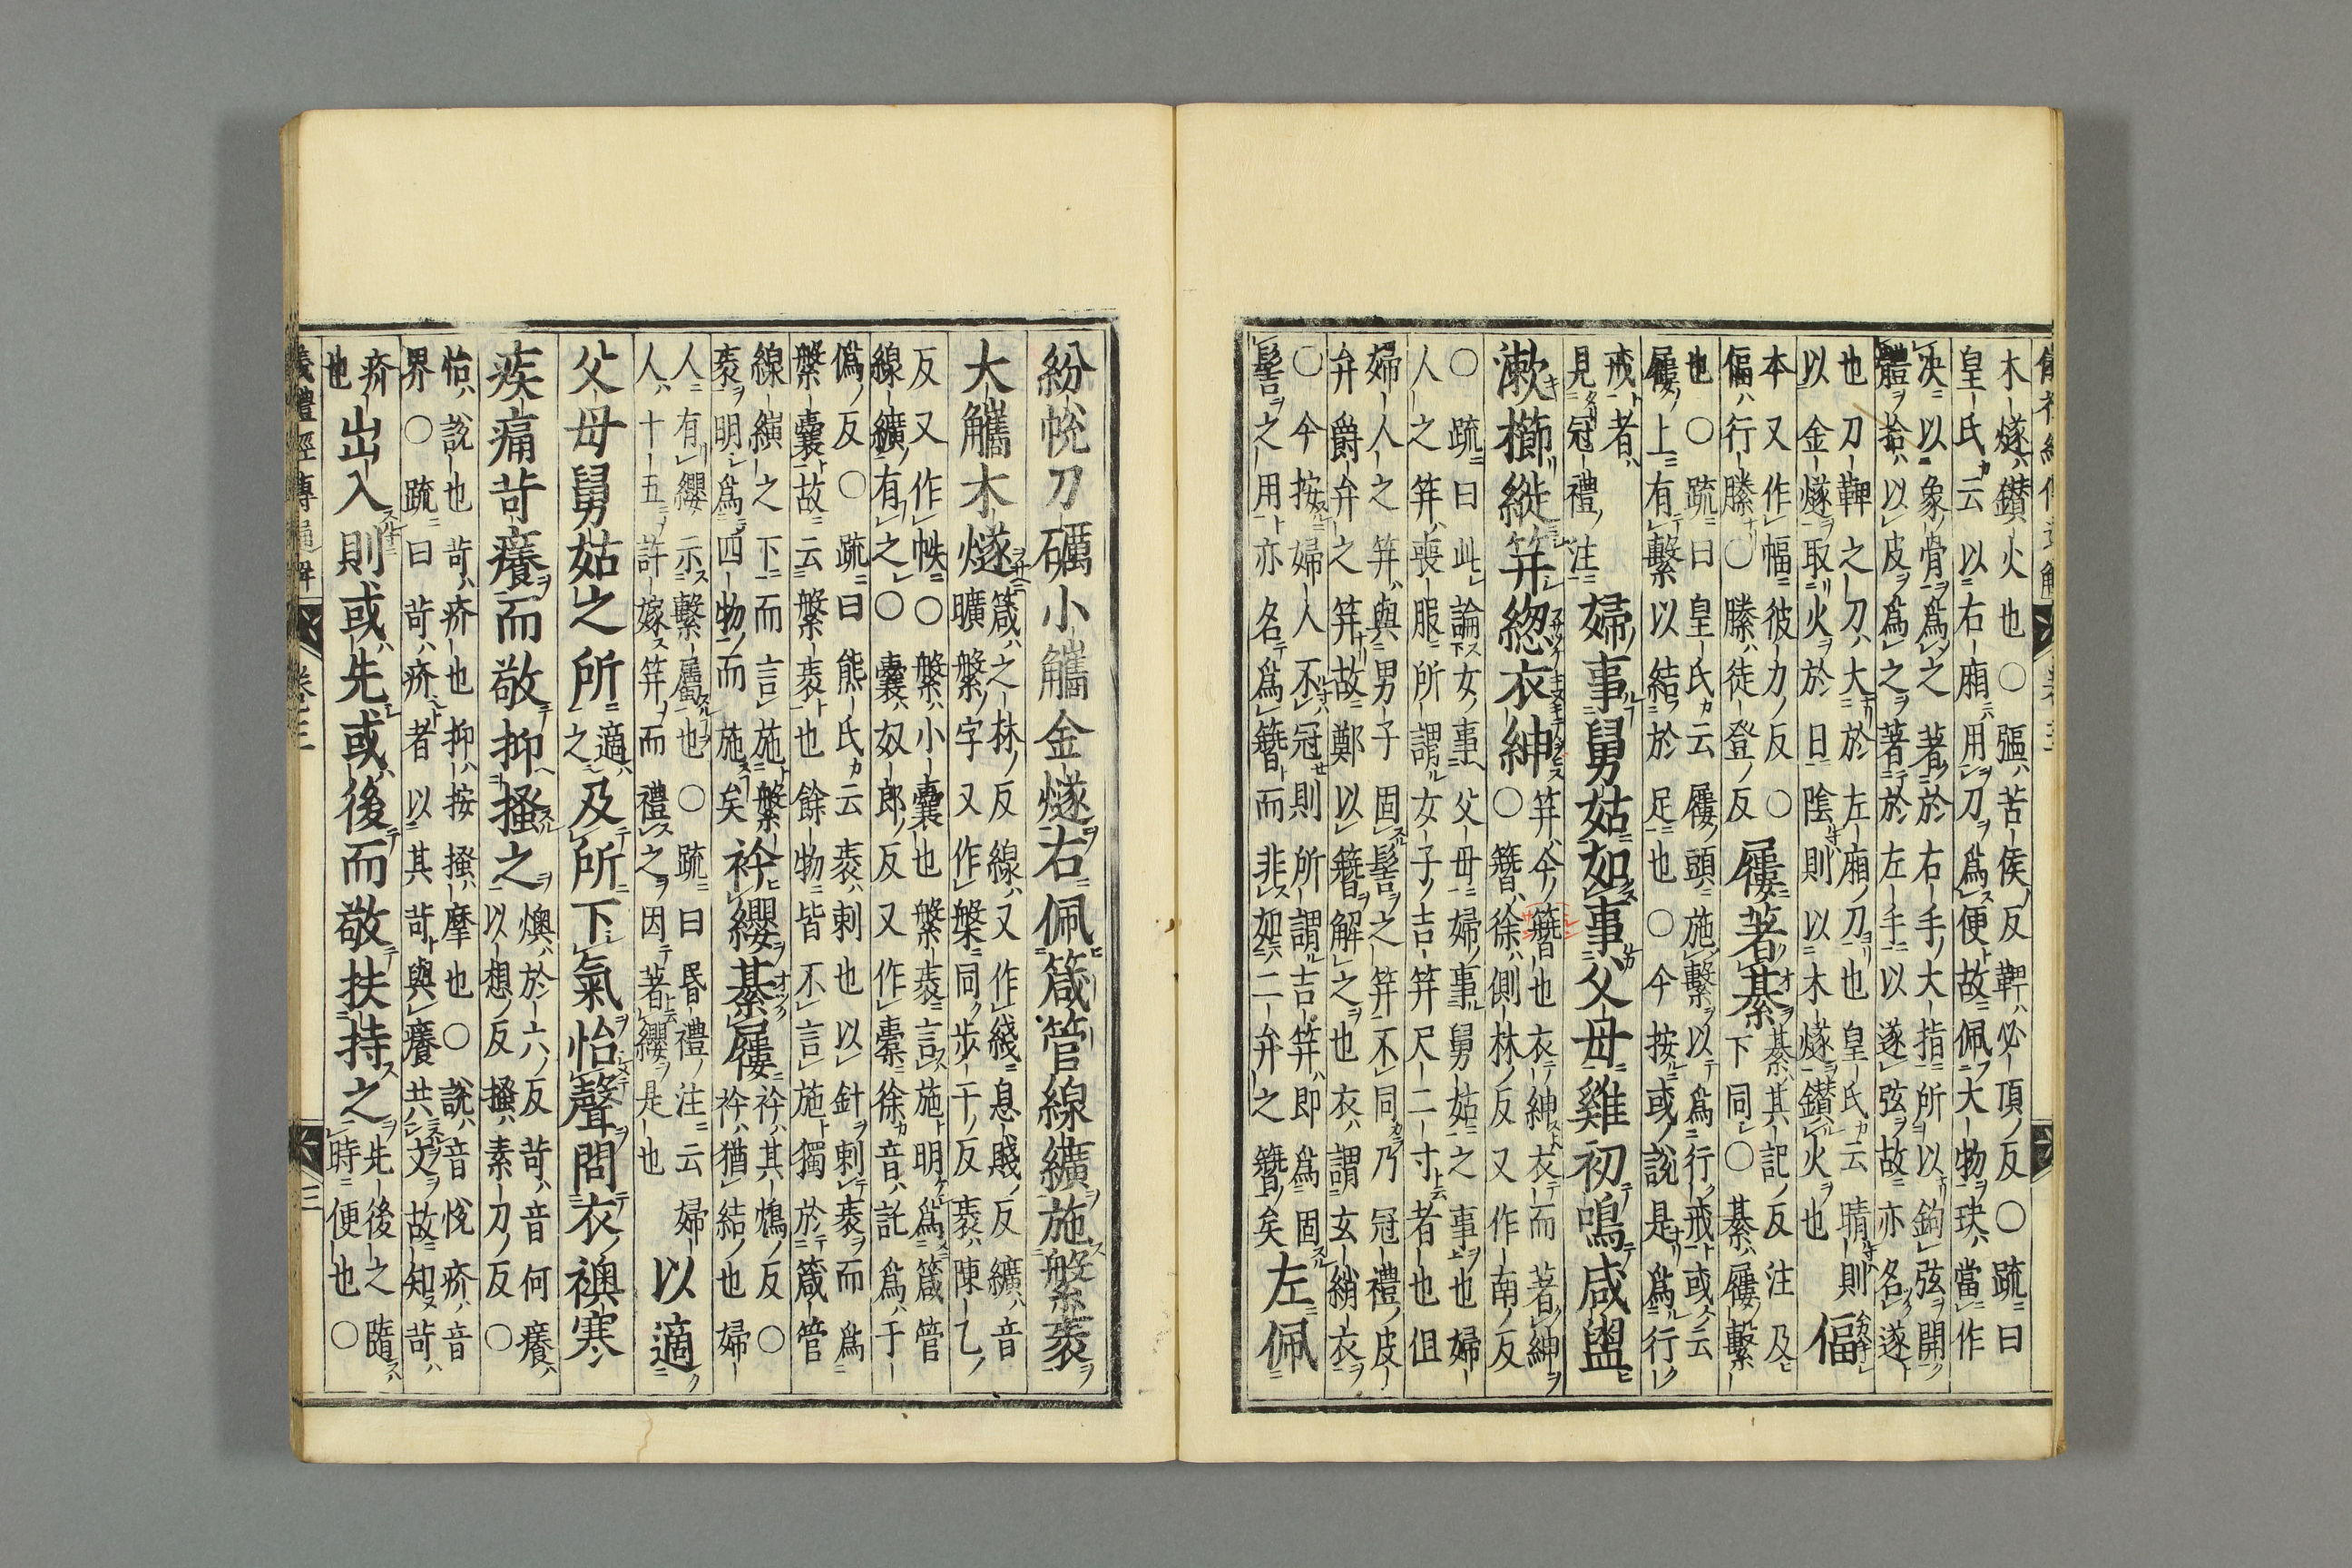 儀禮經傳通解 卷三
木燧鑚火也○彄苦侯反鞞必頂反○疏曰
皇氏云以右廂用刀為便故佩大物玦當作
决以象骨為之著於右手大指所以鉤弦開
體拾以皮為之著於左手以遂弦故亦名遂
也刀鞞之刀大於左廂刀也皇氏云晴則
以金燧取火於日陰則以木燧鑚火也
偪
本又作幅彼力反○
偪行縢○縢徒登反
屨著綦
綦其記反注及
下同○綦屨繫
也○疏曰皇氏云屨頭施繫以為行戒或云
屨上有繫以結於足也○今按或說是為行
戒者
見冠禮注
婦事舅姑如事父母雞初鳴咸盥
漱櫛縰笄緫衣紳
笄今簪也衣紳衣而著紳
○簪徐側林反又作南反
○疏曰此論女事父母婦事舅姑之事也婦
人之笄喪服所謂女子吉笄尺二寸者也但
婦人之笄與男子固髺之笄不同乃冠禮皮
弁爵弁之笄故鄭以簪解之也衣謂玄綃衣
○今按婦人不冠則所謂吉笄即為固
髺之用亦名為簪而非如二弁之簪矣
左佩
紛帨刀礪小觿金燧右佩箴管線纊施縏袠
大觿木燧
箴之林反線又作綫息賤反纊音
曠縏字又作槃同步干反袠陳乙
反又作帙○縏小囊也縏袠言施明為箴管
線纊有之○囊奴郎反又作橐徐音託為于
偽反○疏曰熊氏云袠刺也以針刺袠而為
縏囊故云縏袠也餘物皆不言施獨於箴管
線纊之下而言施縏
袠明為四物而施矣
衿纓綦屨
衿其鴆反○
衿猶結也婦
人有纓示繫屬也○疏曰昏禮注云婦
人十五許嫁笄而禮之因著纓是也
以適
父母舅姑之所
適
之
及所下氣怡聲問衣襖寒
疾痛苛癢而敬抑搔之
燠於六反苛音何癢
以想反搔素刀反○
怡說也苛疥也抑按搔摩也○說音悅疥音
界○疏曰苛疥者以其苛與癢共文故知苛
疥
也
出入則或先或後而敬扶持之
先後之隨
時便也○
儀禮經傳通解 卷三 三